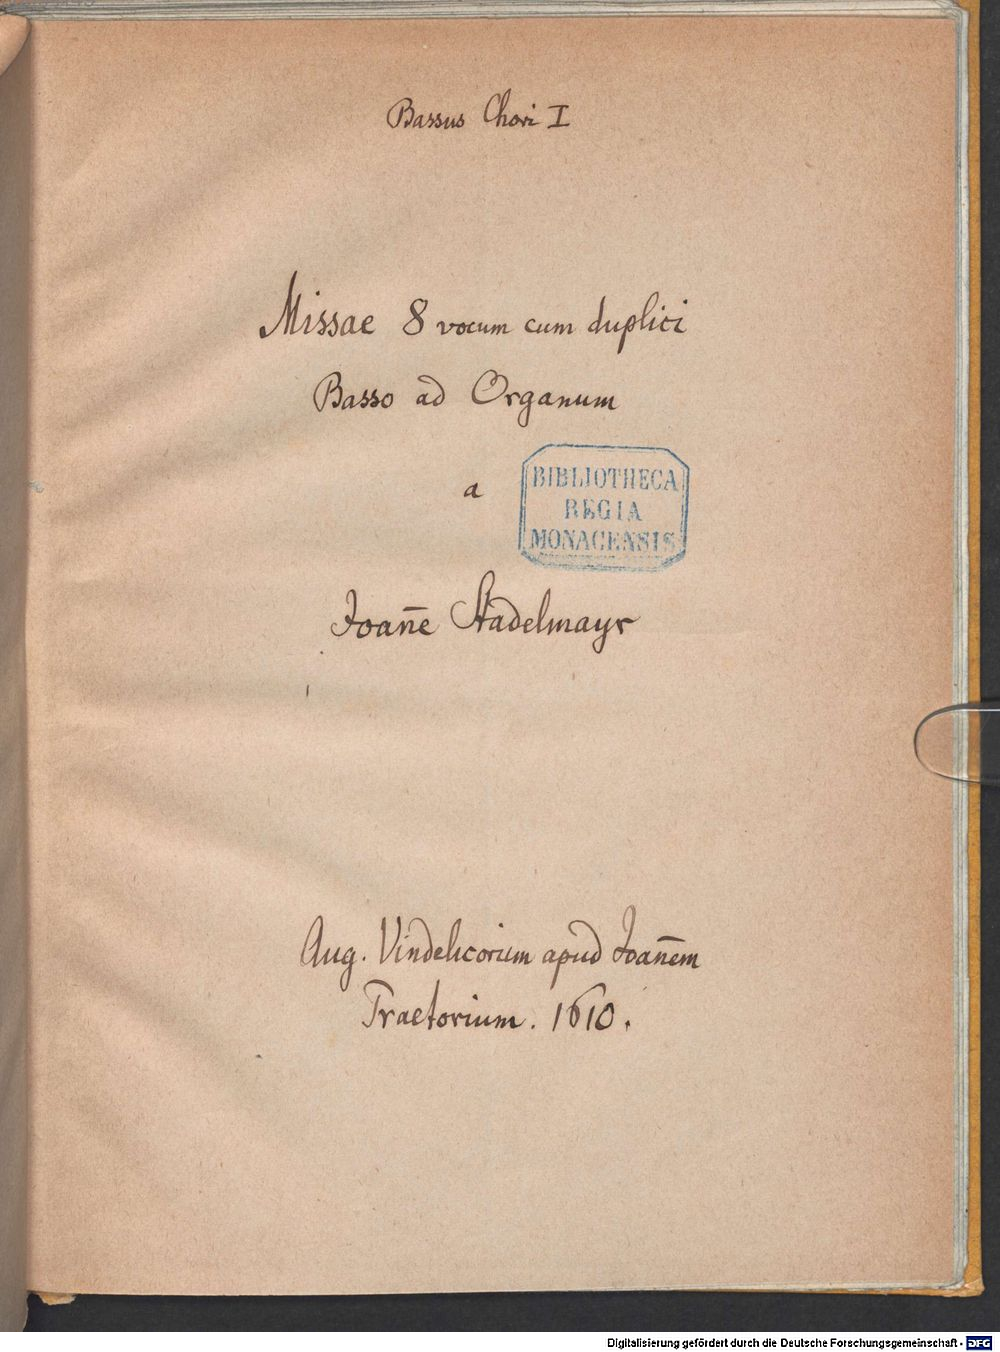 Bassus Chori I
Missae 8 vocum cum duplici
Basso ad Organum
a
BIBLIOTHECA
REGIA
MONACENSIS
Joan̄e Stadelmayr
Aug. Vindelicorum apud Joan̄em
Praetorium. 1610.
Digitalisierung gefördert durch die Deutsche Forschungsgemeinschaft - DFG